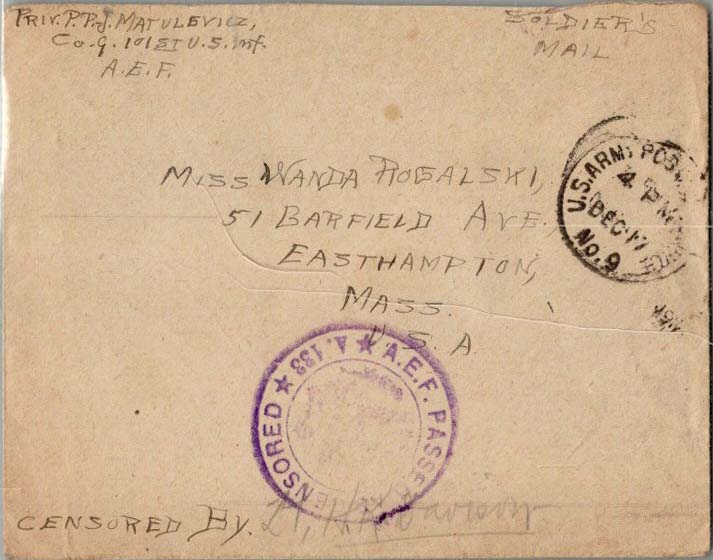 PRIV. P.P.J. MATULEVICZ,
CO. G. 101ST U.S. Inf.
A.E.F.
SOLDIER'S
MAIL
MISS WANDA ROGALSKI,
51 BARFIELD AVE.,
EASTHAMPTON,
MASS.
U.S.A.
U.S. ARMY POST
4 PM
DEC 17
No. 9
A.E.F. PASSED
CENSORED
A.133
CENSORED By. Lt, Davison